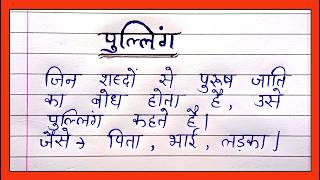 पुल्लिंग
जिन शब्दों से पुरुष जाति
का बोध होता है, उसे
पुल्लिंग कहते हैं।
जैसे→ पिता, भाई, लड़का।